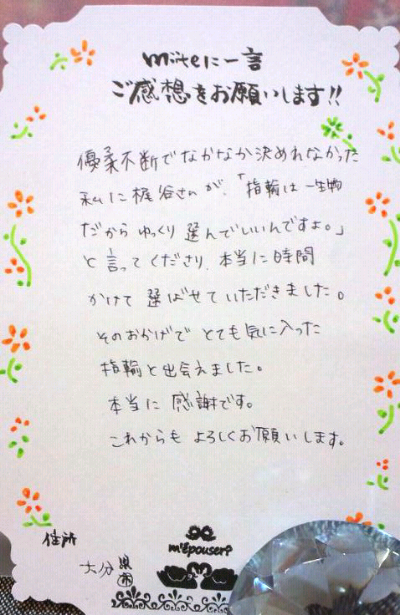 miteに一言
ご感想をお願いします!!
優柔不断でなかなか決めれなかった
私に梶谷さんが、「指輪は一生物
だから ゆっくり 選んでいいんですよ。」
と言ってくださり、本当に時間
かけて 選ばせていただきました。
そのおかげで とても気に入った
指輪と出会えました。
本当に 感謝です。
これからも よろしくお願いします。
住所
大分県
市
m'épouser?